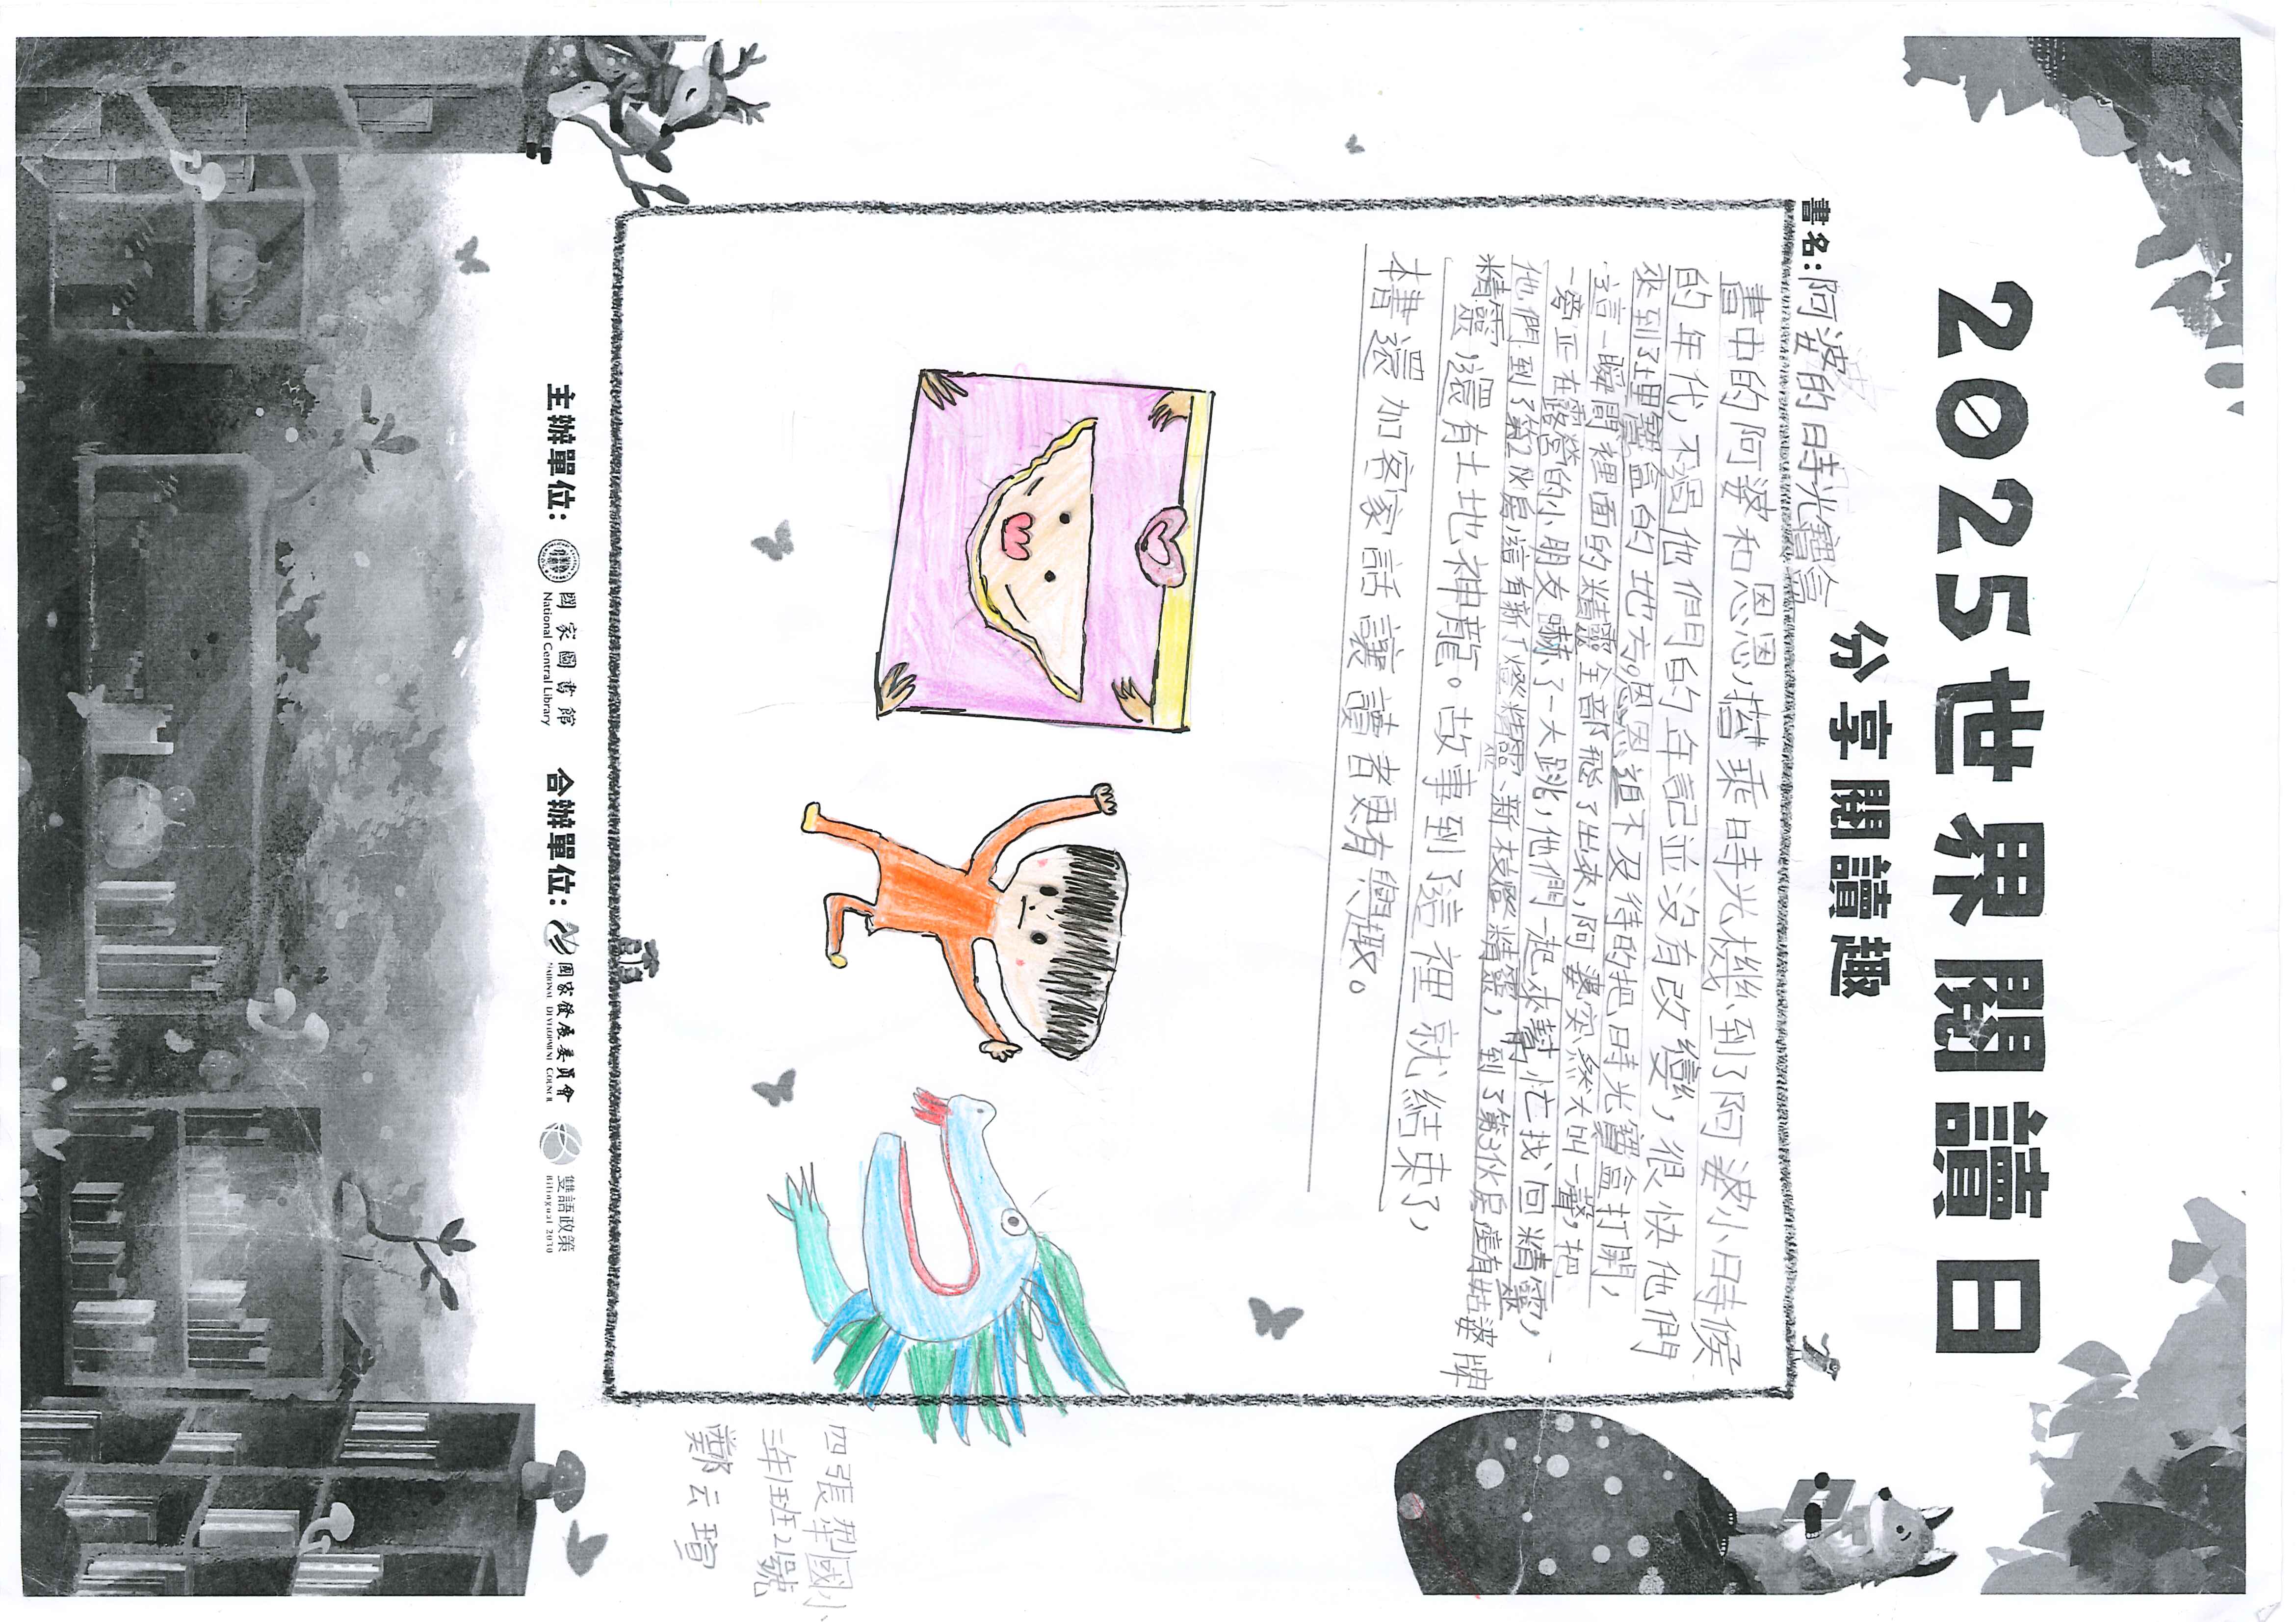 2025世界閱讀日
分享閱讀趣
書名:阿婆的時光寶盒
書中的阿婆和恩恩,搭乘時光機到了阿婆小時候
的年代,不過他們的年記並沒有改變,很快他們
來到了埋寶盒的地方。恩恩迫不及待的把時光寶盒打開,
這一瞬間裡面的精靈全部飛了出來,阿婆突然大叫一聲,把
一旁正在露營的小朋友嚇了一大跳,他們一起來幫忙找回精靈,
他們到了第2伙房,這有新丁燈精靈、新枝燈精靈,到了第3伙房有姑婆牌
精靈,還有土地神龍。故事到了這裡就結束了,
本書還加客家話讓讀者更有興趣。
四張犁國小
三年1班21號
鄭云瑄
主辦單位:
國家圖書館
National Central Library
合辦單位:
國家發展委員會
NATIONAL DEVELOPMENT COUNCIL
雙語政策
Bilingual 2030